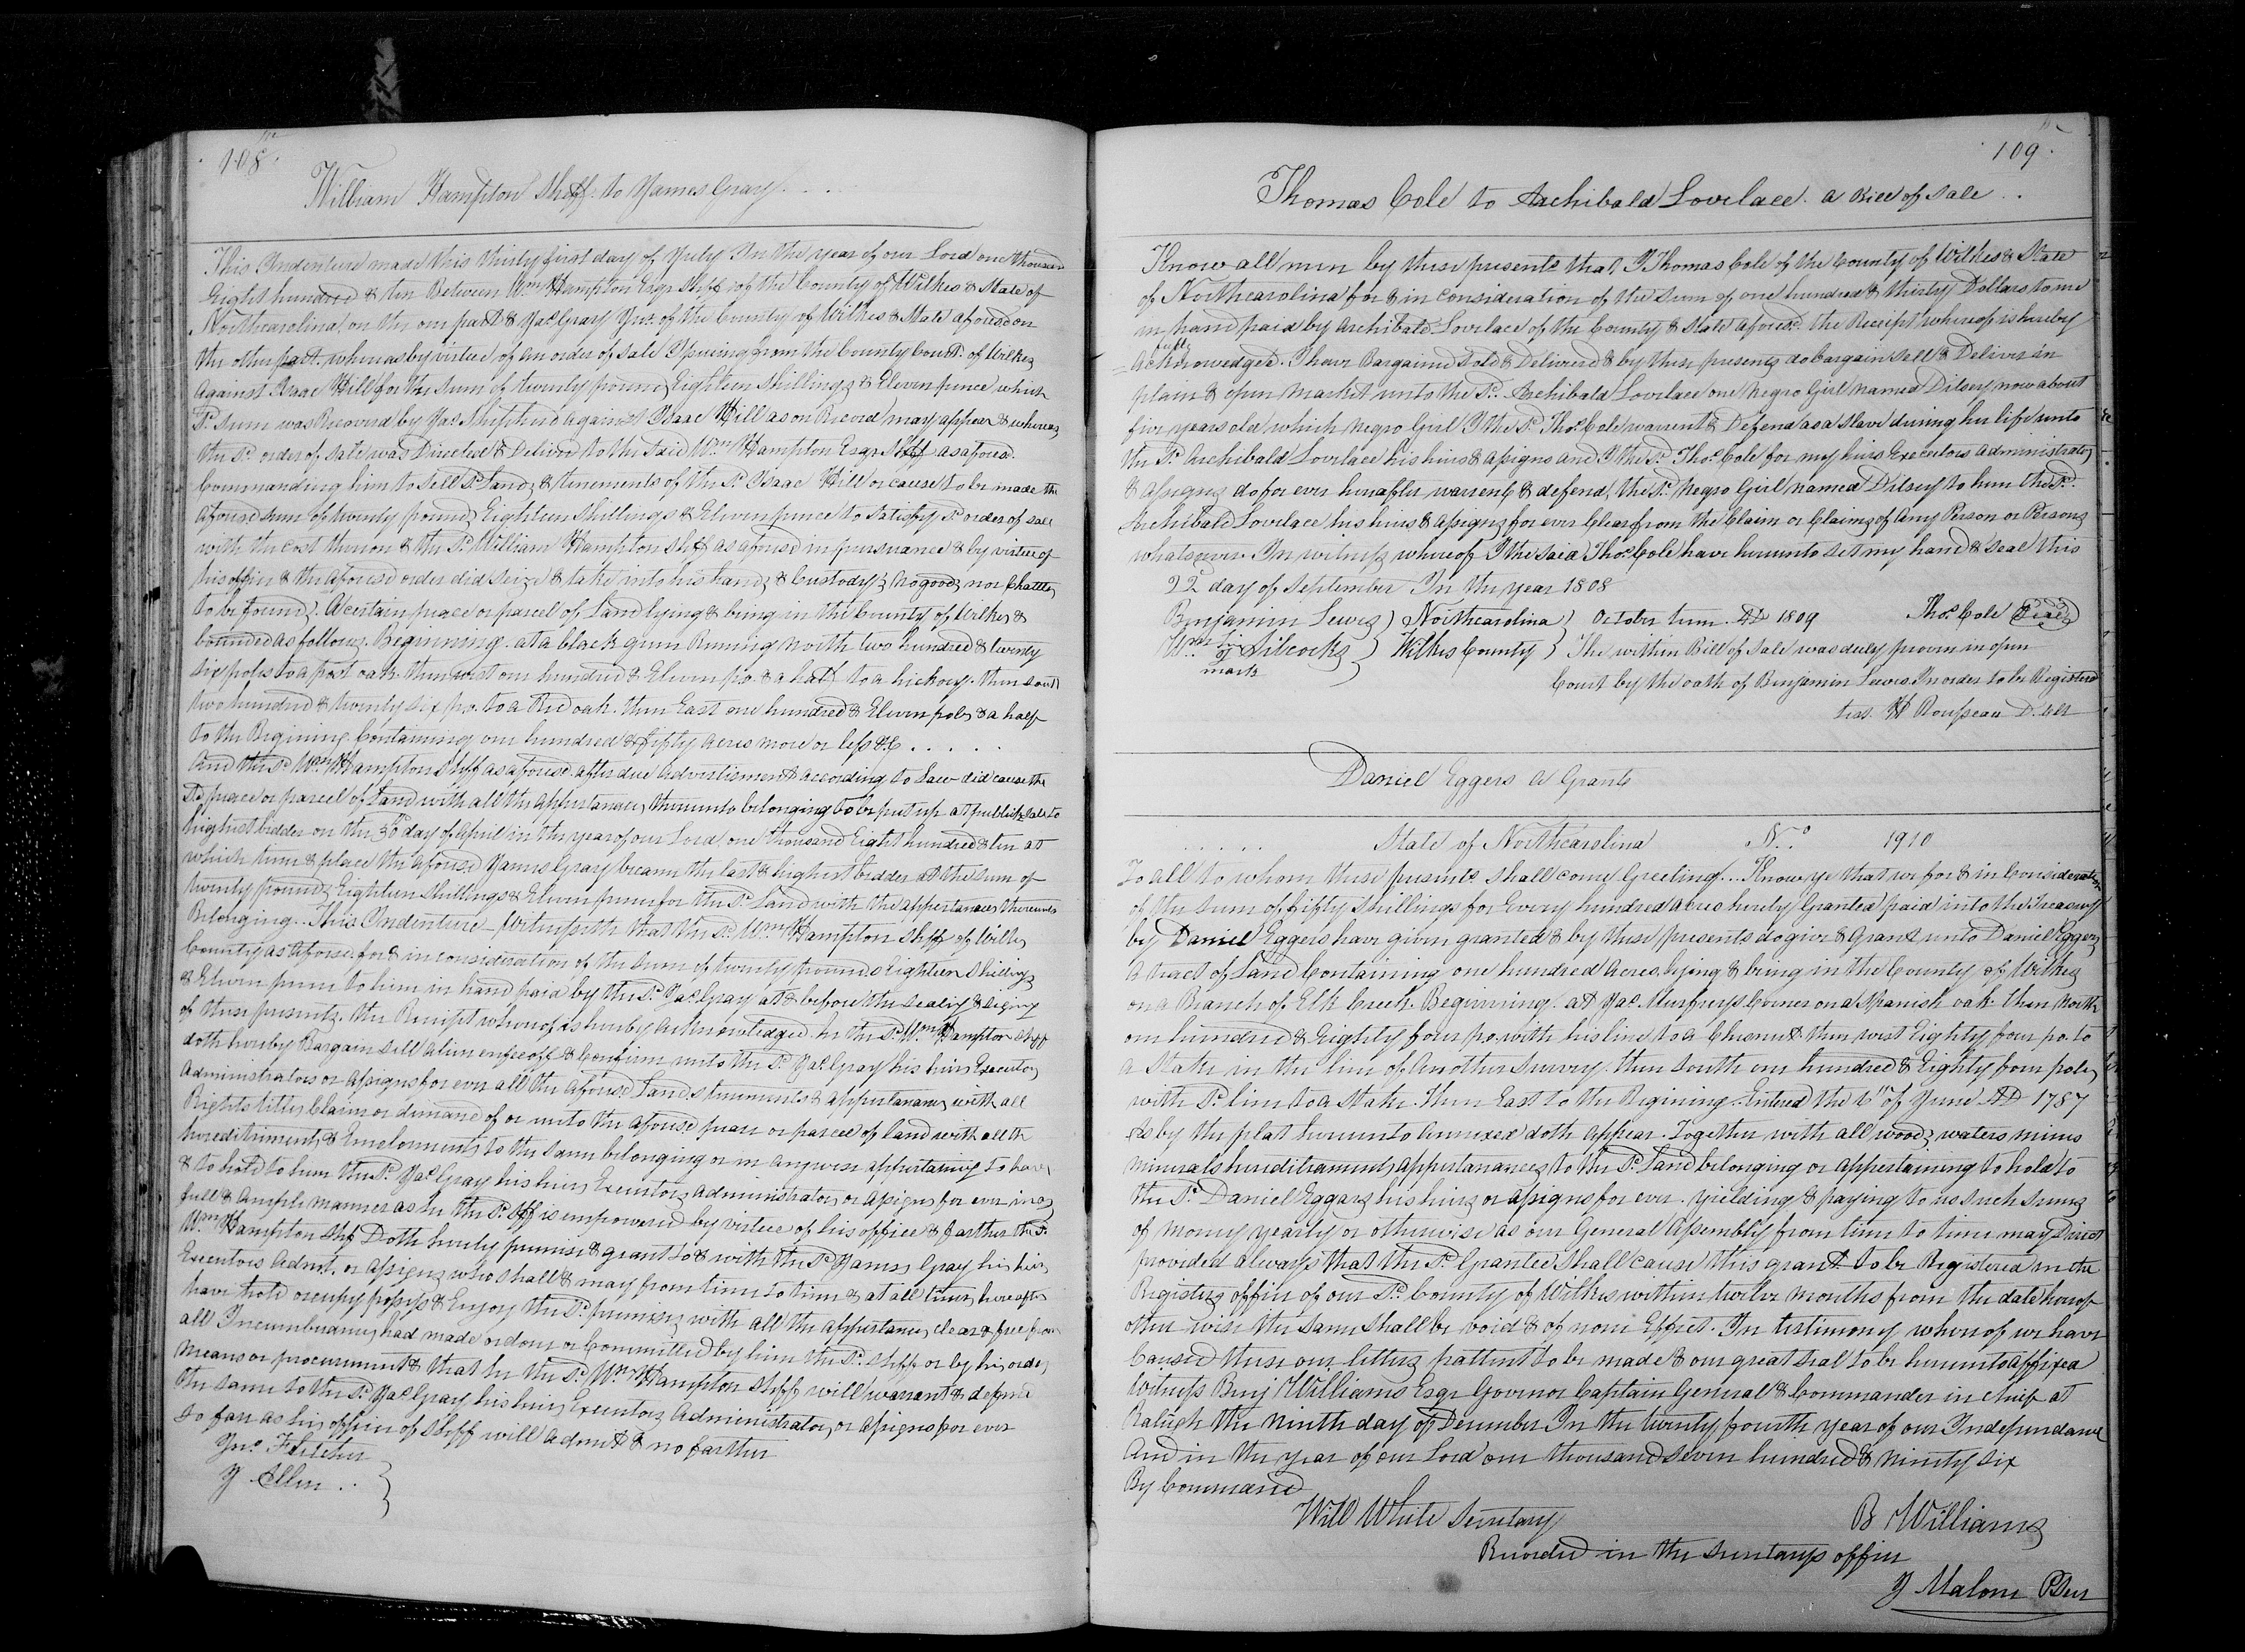 108.
William Hampton Shff. to James Gray. . . .
This Indenture made this thirty first day of July In the year of our Lord one thousand
Eight hundred & ten Between Wm Hampton Esqr Shff of the County of Wilkes & State of
Northcarolina on the one part & Jas. Gray Jnr. of the County of Wilkes & State aforesd on
the other part. whereas by virtue of an order of sale Issueing from the County Court of Wilkes
against Isaac Hill for the sum of twenty pounds Eighteen Shillings & Eleven pence which
Sd. sum was Recoverd by Jas. Shepherd against Isaac Hill as on Record may appear & whereas
the Sd. order of sale was Directed & Deliverd to the said Wm Hampton Esqr Shff as aforesd.
Commanding him to Sell Sd. Lands & tenements of the Sd. Isaac Hill or cause to be made the
aforesd sum of twenty pounds Eighteen Shillings & Eleven pence to satisfy Sd. order of sale
with the cost thereon & the Sd. William Hampton Shff as aforesd in pursuance & by virtue of
his office & the aforesd order did seize & take into his hands & Custody, no goods nor Chattles
to be found. A certain peace or parcel of Land lying & being in the County of Wilkes &
bounded as follows. Beginning at a black gum Running north two hundred & twenty
six poles to a post oak then west one hundred & Eleven po. & a half to a hickory. then south
two hundred & twenty six po. to a Red oak. then East one hundred & Eleven poles & a half
to the Begining. Containing one hundred & fifty acres more or less &C . . . . .
And the Sd. Wm Hampton Shff as aforesd. after due Advertisment according to Law did cause the
Sd. peace or parcel of Land with all the appurtances thereunto belonging to be put up at publick sale to
highest bidder on the 30th day of April in the year of our Lord one thousand Eight hundred & ten at
which time & place the aforesd James Gray became the last & highest bidder at the sum of
twenty pounds Eighteen Shillings & Eleven pence for the Sd. Land with the appertances thereunto
Belonging. This Indenture Witnesseth that the Sd. Wm Hampton Shff of Wilkes
County as aforesd. for & in consideration of the sum of twenty pounds Eighteen Shillings
& Eleven pence to him in hand paid by the Sd. Jas. Gray at & before the sealig & signing
of these presents. the Receipt whereof is hereby acknowledged he the Sd. Wm Hampton Shff
doth hereby Bargain sell alien enfeoff & Confirm unto the Sd. Jas. Gray his heirs Executors
Administrators or assigns for ever all the aforesd Lands tenements & appurtanances with all
Rights titles Claim or demand of or unto the aforesd. peace or parcel of land with all th
hereditiments & Emoloments to the same belonging or in anywise appertaining To have
& to hold to him the Sd. Jas. Gray his heirs Executors administrators or assigns for ever in as
full & ample manner as he the Sd. Shff is empowered by virtue of his office & farther the Sd.
Wm Hampton Shf Doth hereby promise & grant to & with the Sd James Gray his heirs
Executors Admt. or assigns who shall & may from time to time & at all times hereafter
have hold occupy possess & Enjoy the Sd. premises with all the appurtances clear & free from
all Incumbrances had made or done or Committed by him the Sd. Shff or by his orders
means or procurement & that he the Sd. Wm Hampton Shff will warrant & defend
the same to the Sd Jas. Gray his heirs Executors Administrators or assigns for ever
so farr as his office of Shff will admit & no farther
Jno. Fletcher
J Allen . .
109.
Thomas Cole to Archibald Lovelace. a Bill of Sale . .
Know all men by these presents that I Thomas Cole of the County of Wilkes & State
of Northcarolina for & in Consideration of the sum of one hundred & thirty Dollars to me
in hand paid by Archibald Lovelace of the County & State aforesd. the Receipt whereof is hereby
fully
Acknowedged. I have Bargained Sold & Delivered & by these presents do bargain Sell & Deliver in
plain & open Market unto the Sd. Archibald Lovelace one Negro Girl named Dilsey now about
five years old which Negro Girl I the Sd. Thos. Cole warrent & Defend as a slave during her life unto
the Sd. Archibald Lovelace his heirs & assigns and I the Sd. Thos. Cole for my heirs Executors Administrators
& assigns do for ever hereafter warrent & defend the Sd. Negro Girl named Dilsey to him the Sd.
Archibald Lovelace his heirs & assigns for ever Clear from the Claim or Claims of any Person or Persons
whatsoever. In witness whereof I the said Thos. Cole have hereunto set my hand & seal this
22 day of September In the year 1808
Benjamin Lewis Northcarolina October term. AD 1809 Thos. Cole Seal
Wm Silcocks Wilkes County The within Bill of Sale was duly proven in open
mark
Court by the oath of Benjamin Lewis In order to be Registerd
test. H Rousseau D. Clk
Daniel Eggers a Grant
. . . . . State of Northcarolina No. 1910
To all to whom these presents shall come Greeting... Know ye that we for & in Consideration
of the sum of fifty Shillings for Every hundred acres hereby Granted paid into the Treasury
by Daniel Eggers have given granted & by these presents do give & Grant unto Daniel Eggers
a tract of Land Containing one hundred acres lying & being in the County of Wilkes
on a Branch of Elk Creek. Beginning. at Jas. Murfreys Corner on a Spanish oak. then North
one hundred & Eighty four po. with his line to a Chesnut then west Eighty four po. to
a Stake in the line of another Survey. then South one hundred & Eighty four poles
with Sd. line to a Stake. then East to the Begining Entered the 6th of June AD 1787
As by the plat hereunto annexed doth appear. Together with all woods waters mines
minerals hereditraments appurtanances to the Sd. Land belonging or appertaining to hold to
the Sd. Daniel Eggars his heirs or assigns for ever. yielding & paying to us such sums
of money yearly or otherwise as our General Assembly from time to time may Direct
provided always that the Sd. Grantee shall cause this grant to be Registered in the
Registers office of our Sd. County of Wilkes within twelve months from the date hereof
otherwise the same shall be void & of none Effect. In testimony whereof we have
Caused these our letters pattent to be made & our great seal to be hereunto affixed
Witness Benj Williams Esqr Govenor Captain General & Commander in chief at
Raleigh the ninth day of December In the twenty fourth year of our Independance
And in the year of our Lord one thousand seven hundred & ninety six
By Command
Will White Secretary B Williams
Recorded in the secretarys office
J Malone PSec